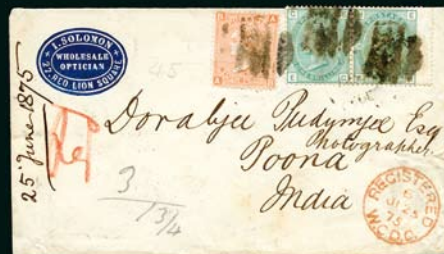 I. SOLOMON
WHOLESALE
OPTICIAN
22, RED LION SQUARE
25 June 1875
45
Dorabjee Pudumjee Esq
Photographer
Poona
India
3
1 3/4
REGISTERED
6
JU 25
75
W.C.D.O.